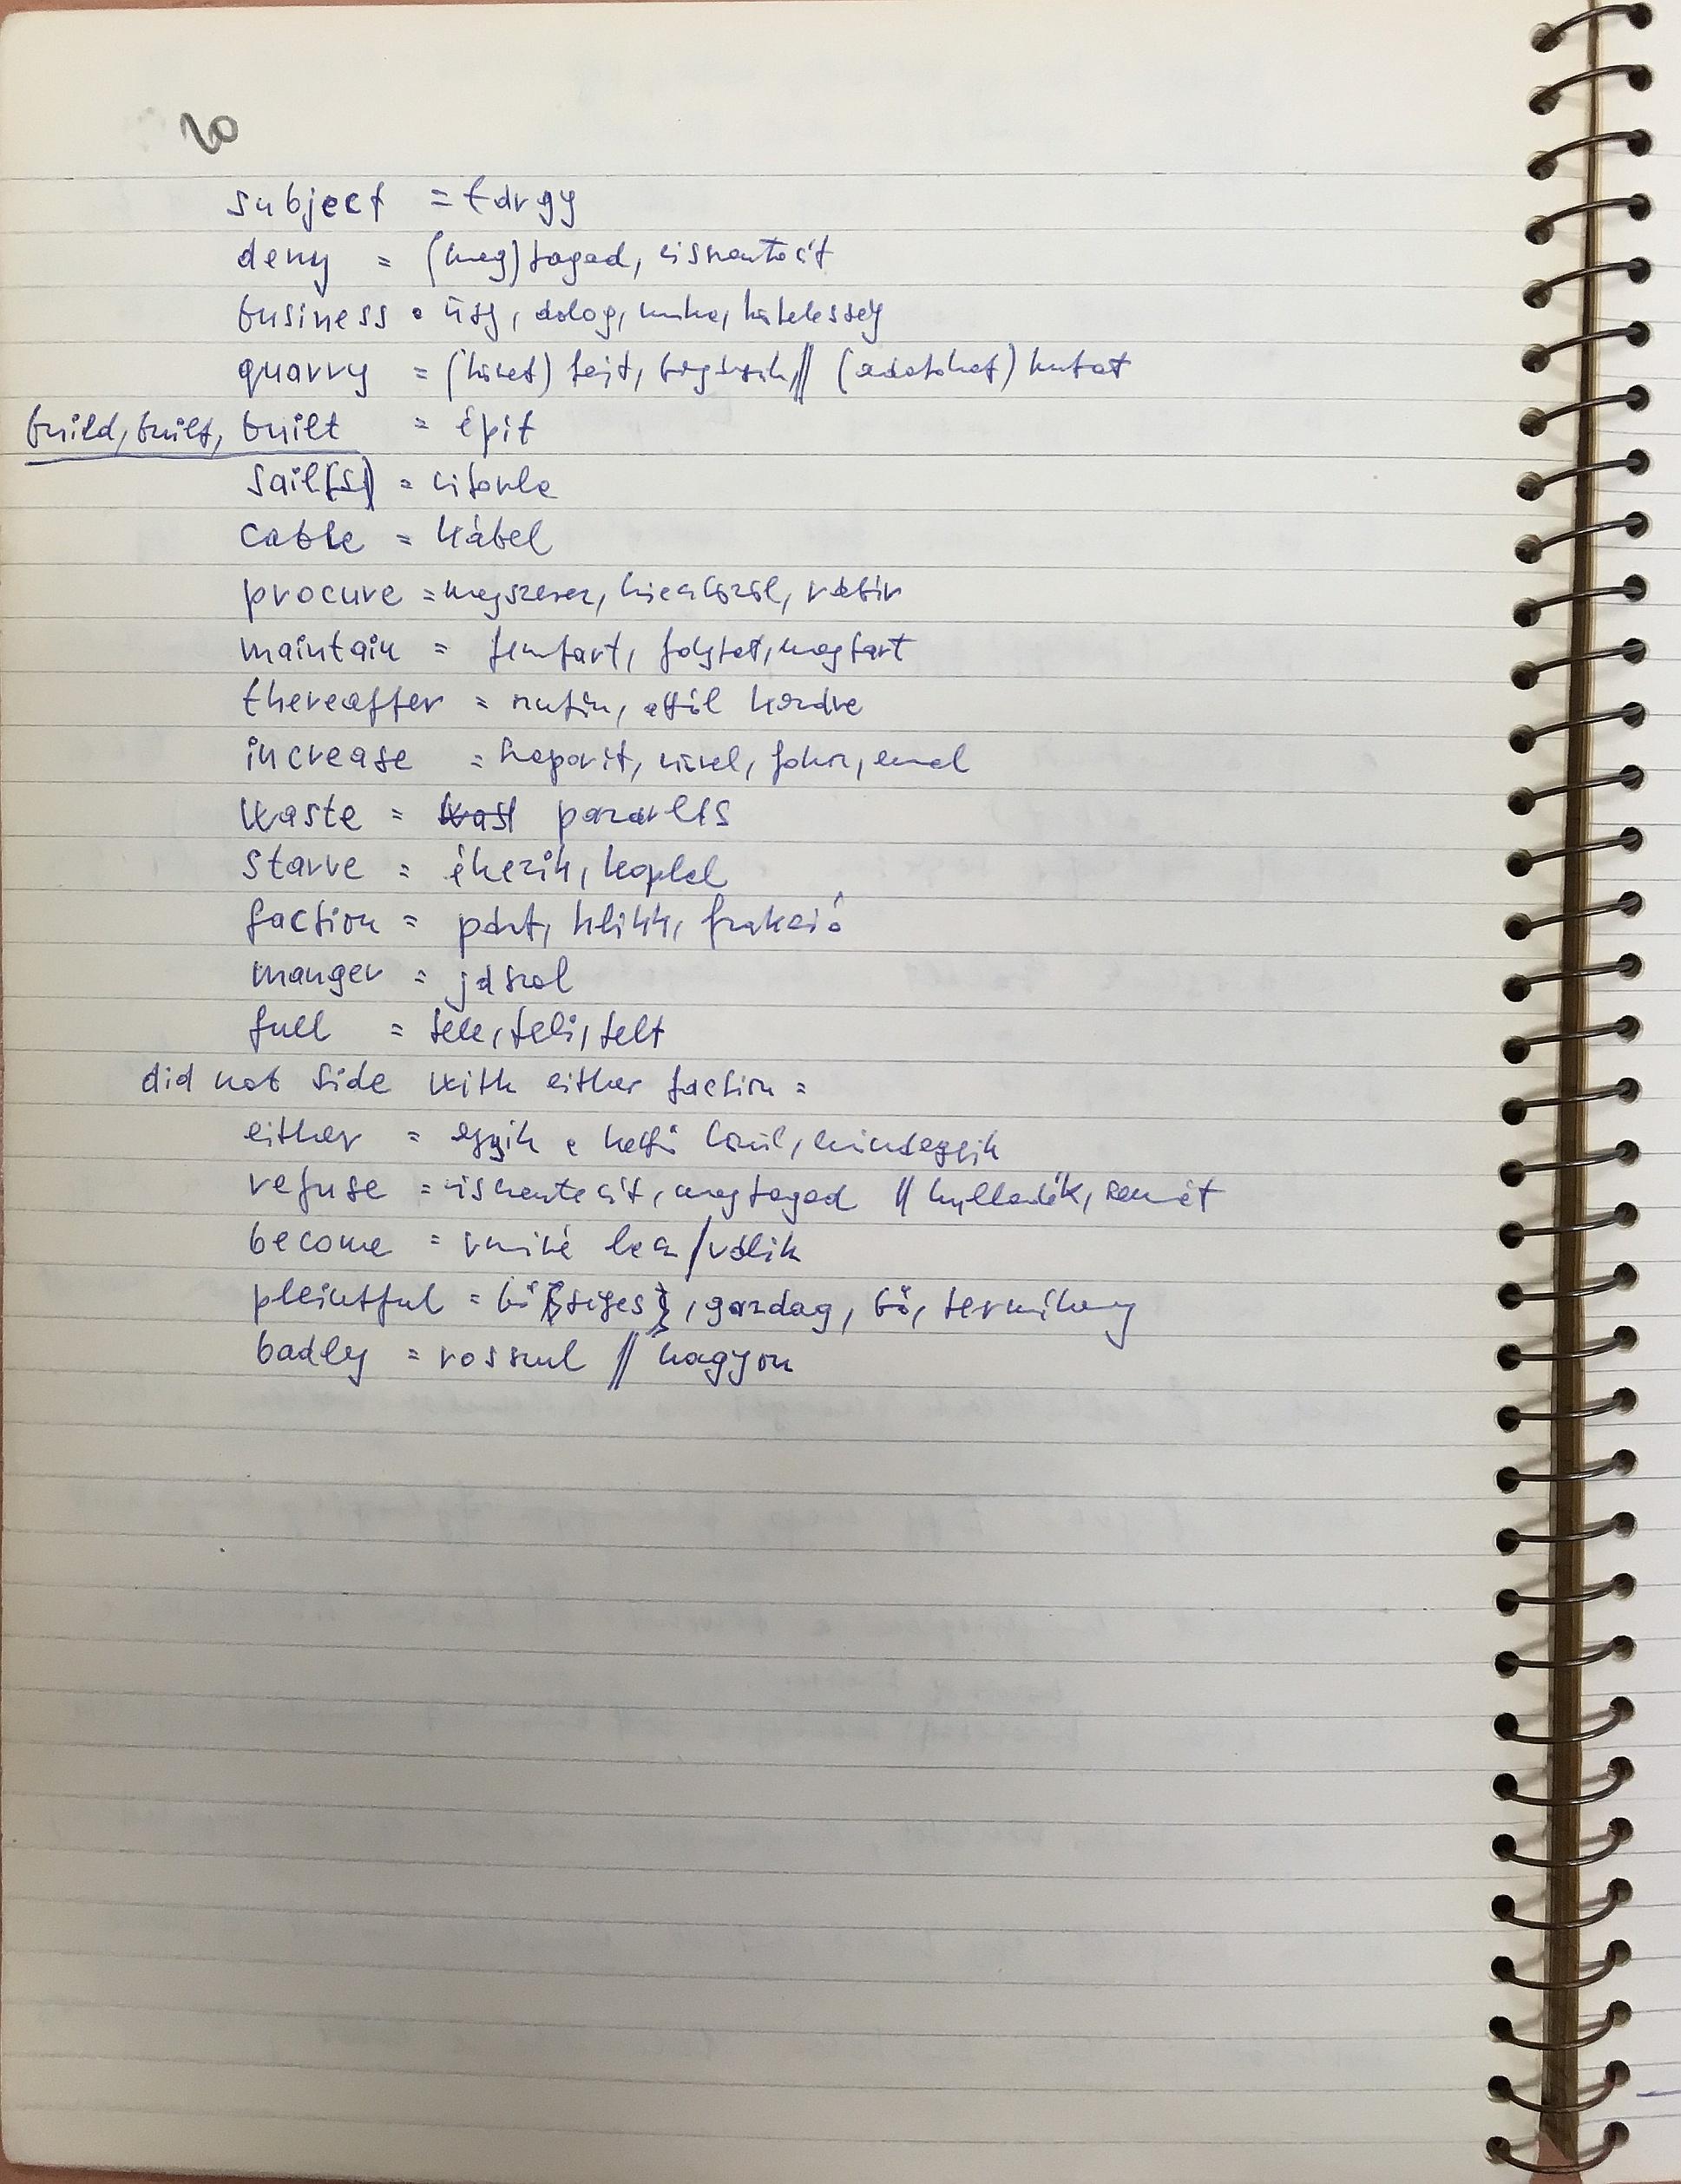 20
subject = tárgy
deny = (meg)tagad, visszautasít
business = ügy, dolog, munka, kötelesség
quarry = (követ) fejt, bányászik // (adatokat) kutat
build, built, built = épit
sail(s) = vitorla
cable = kábel
procure = megszerez, kieszközöl, rábír
maintain = fenntart, folytat, megtart
thereafter = azután, attól kezdve
increase = szaporít, növel, fokoz, emel
waste = pazarlás
starve = éhezik, koplal
faction = párt, klikk, frakció
manger = jászol
full = tele, teli, telt
did not side with either faction =
either = egyik a kettő közül, mindegyik
refuse = visszautasít, megtagad // hulladék, szemét
become = vmivé lesz / válik
pleintful = bő{séges}, gazdag, bő, termékeny
badly = rosszul // nagyon